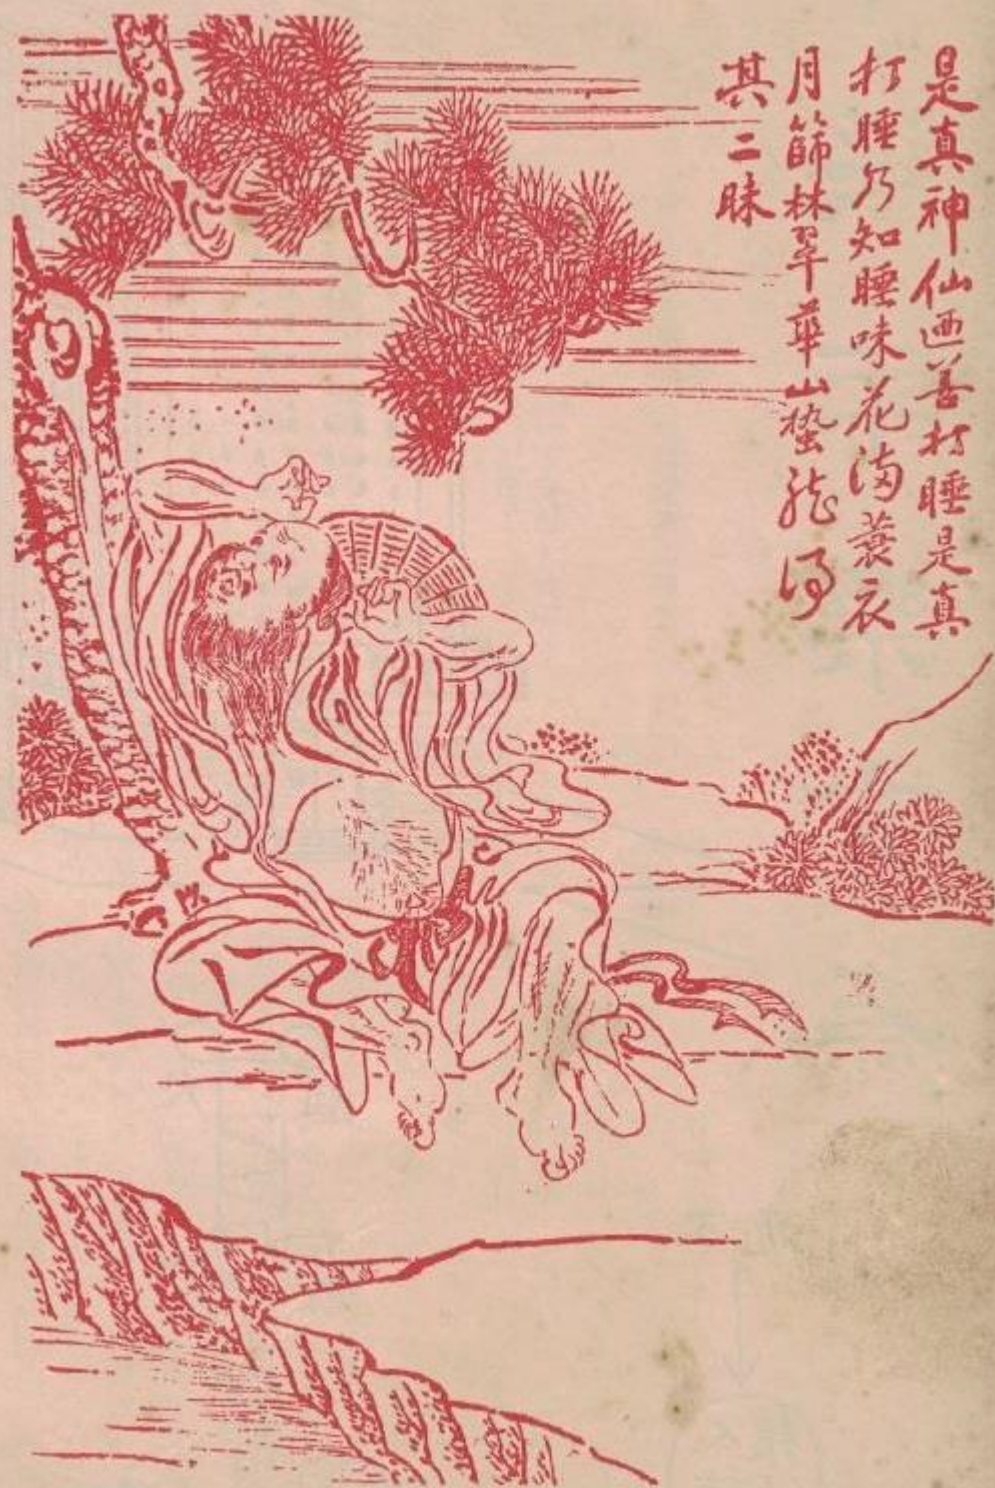 是真神仙迺善打睡是真
打睡乃知睡味花満蓑衣
月篩林翠華山蟄龍得
其二昧